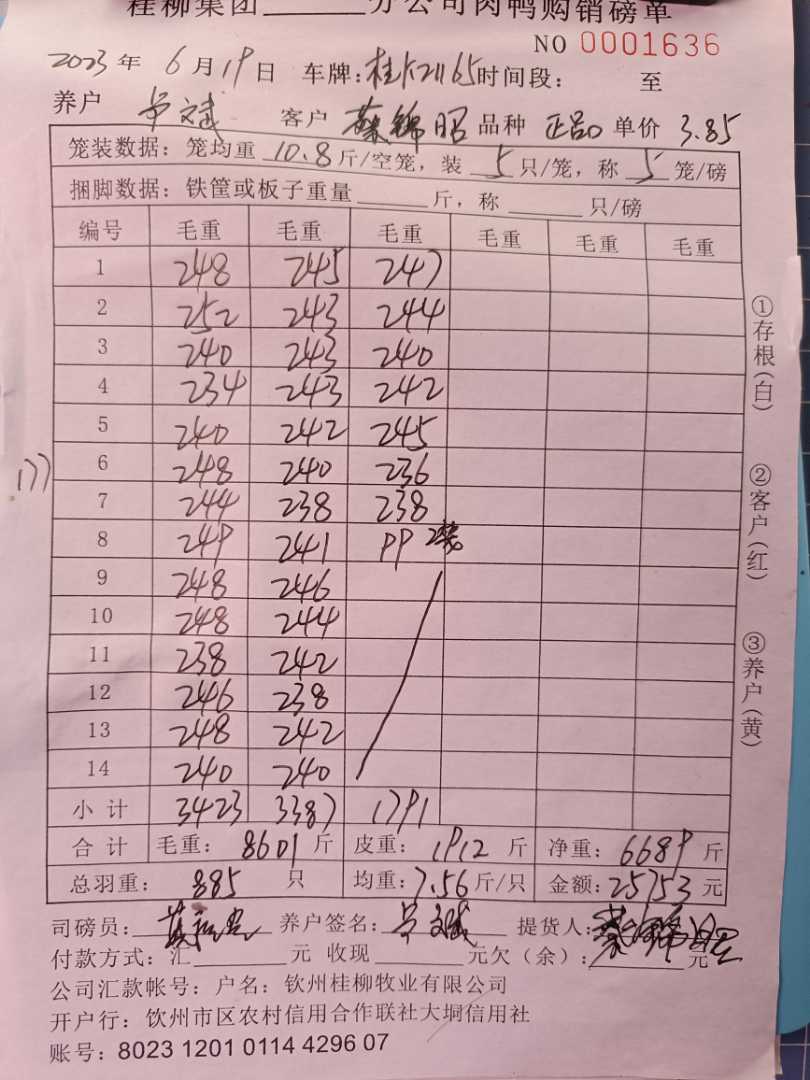 桂柳集团______分公司肉鸭购销磅单
NO 0001636
2023年 6月19日 车牌: 时间段: 至
养户 客户 蔡锦昭 品种 正品 单价 3.85
笼装数据: 笼均重 10.8 斤/空笼, 装 5 只/笼, 称 5 笼/磅
捆脚数据: 铁筐或板子重量______斤, 称______只/磅
编号 毛重 毛重 毛重 毛重 毛重 毛重
1 248 245 247
2 252 243 244
3 240 243 240
4 234 243 242
5 240 242 245
6 248 240 236
177
7 244 238 238
8 249 241
9 248 246
10 248 244
11 238 242
12 246 238
13 248 242
14 240 240
小计 3423 3387 1791
合计 毛重: 8601 斤 皮重: 1912 斤 净重: 6689 斤
总羽重: 885 只 均重: 7.56 斤/只 金额: 25753 元
司磅员: 养户签名: 提货人: 蔡锦昭
付款方式: 汇______元 收现______元欠(余):______元
公司汇款帐号: 户名: 钦州桂柳牧业有限公司
开户行: 钦州市区农村信用合作联社大垌信用社
账号: 8023 1201 0114 4296 07
①存根(白)
②客户(红)
③养户(黄)